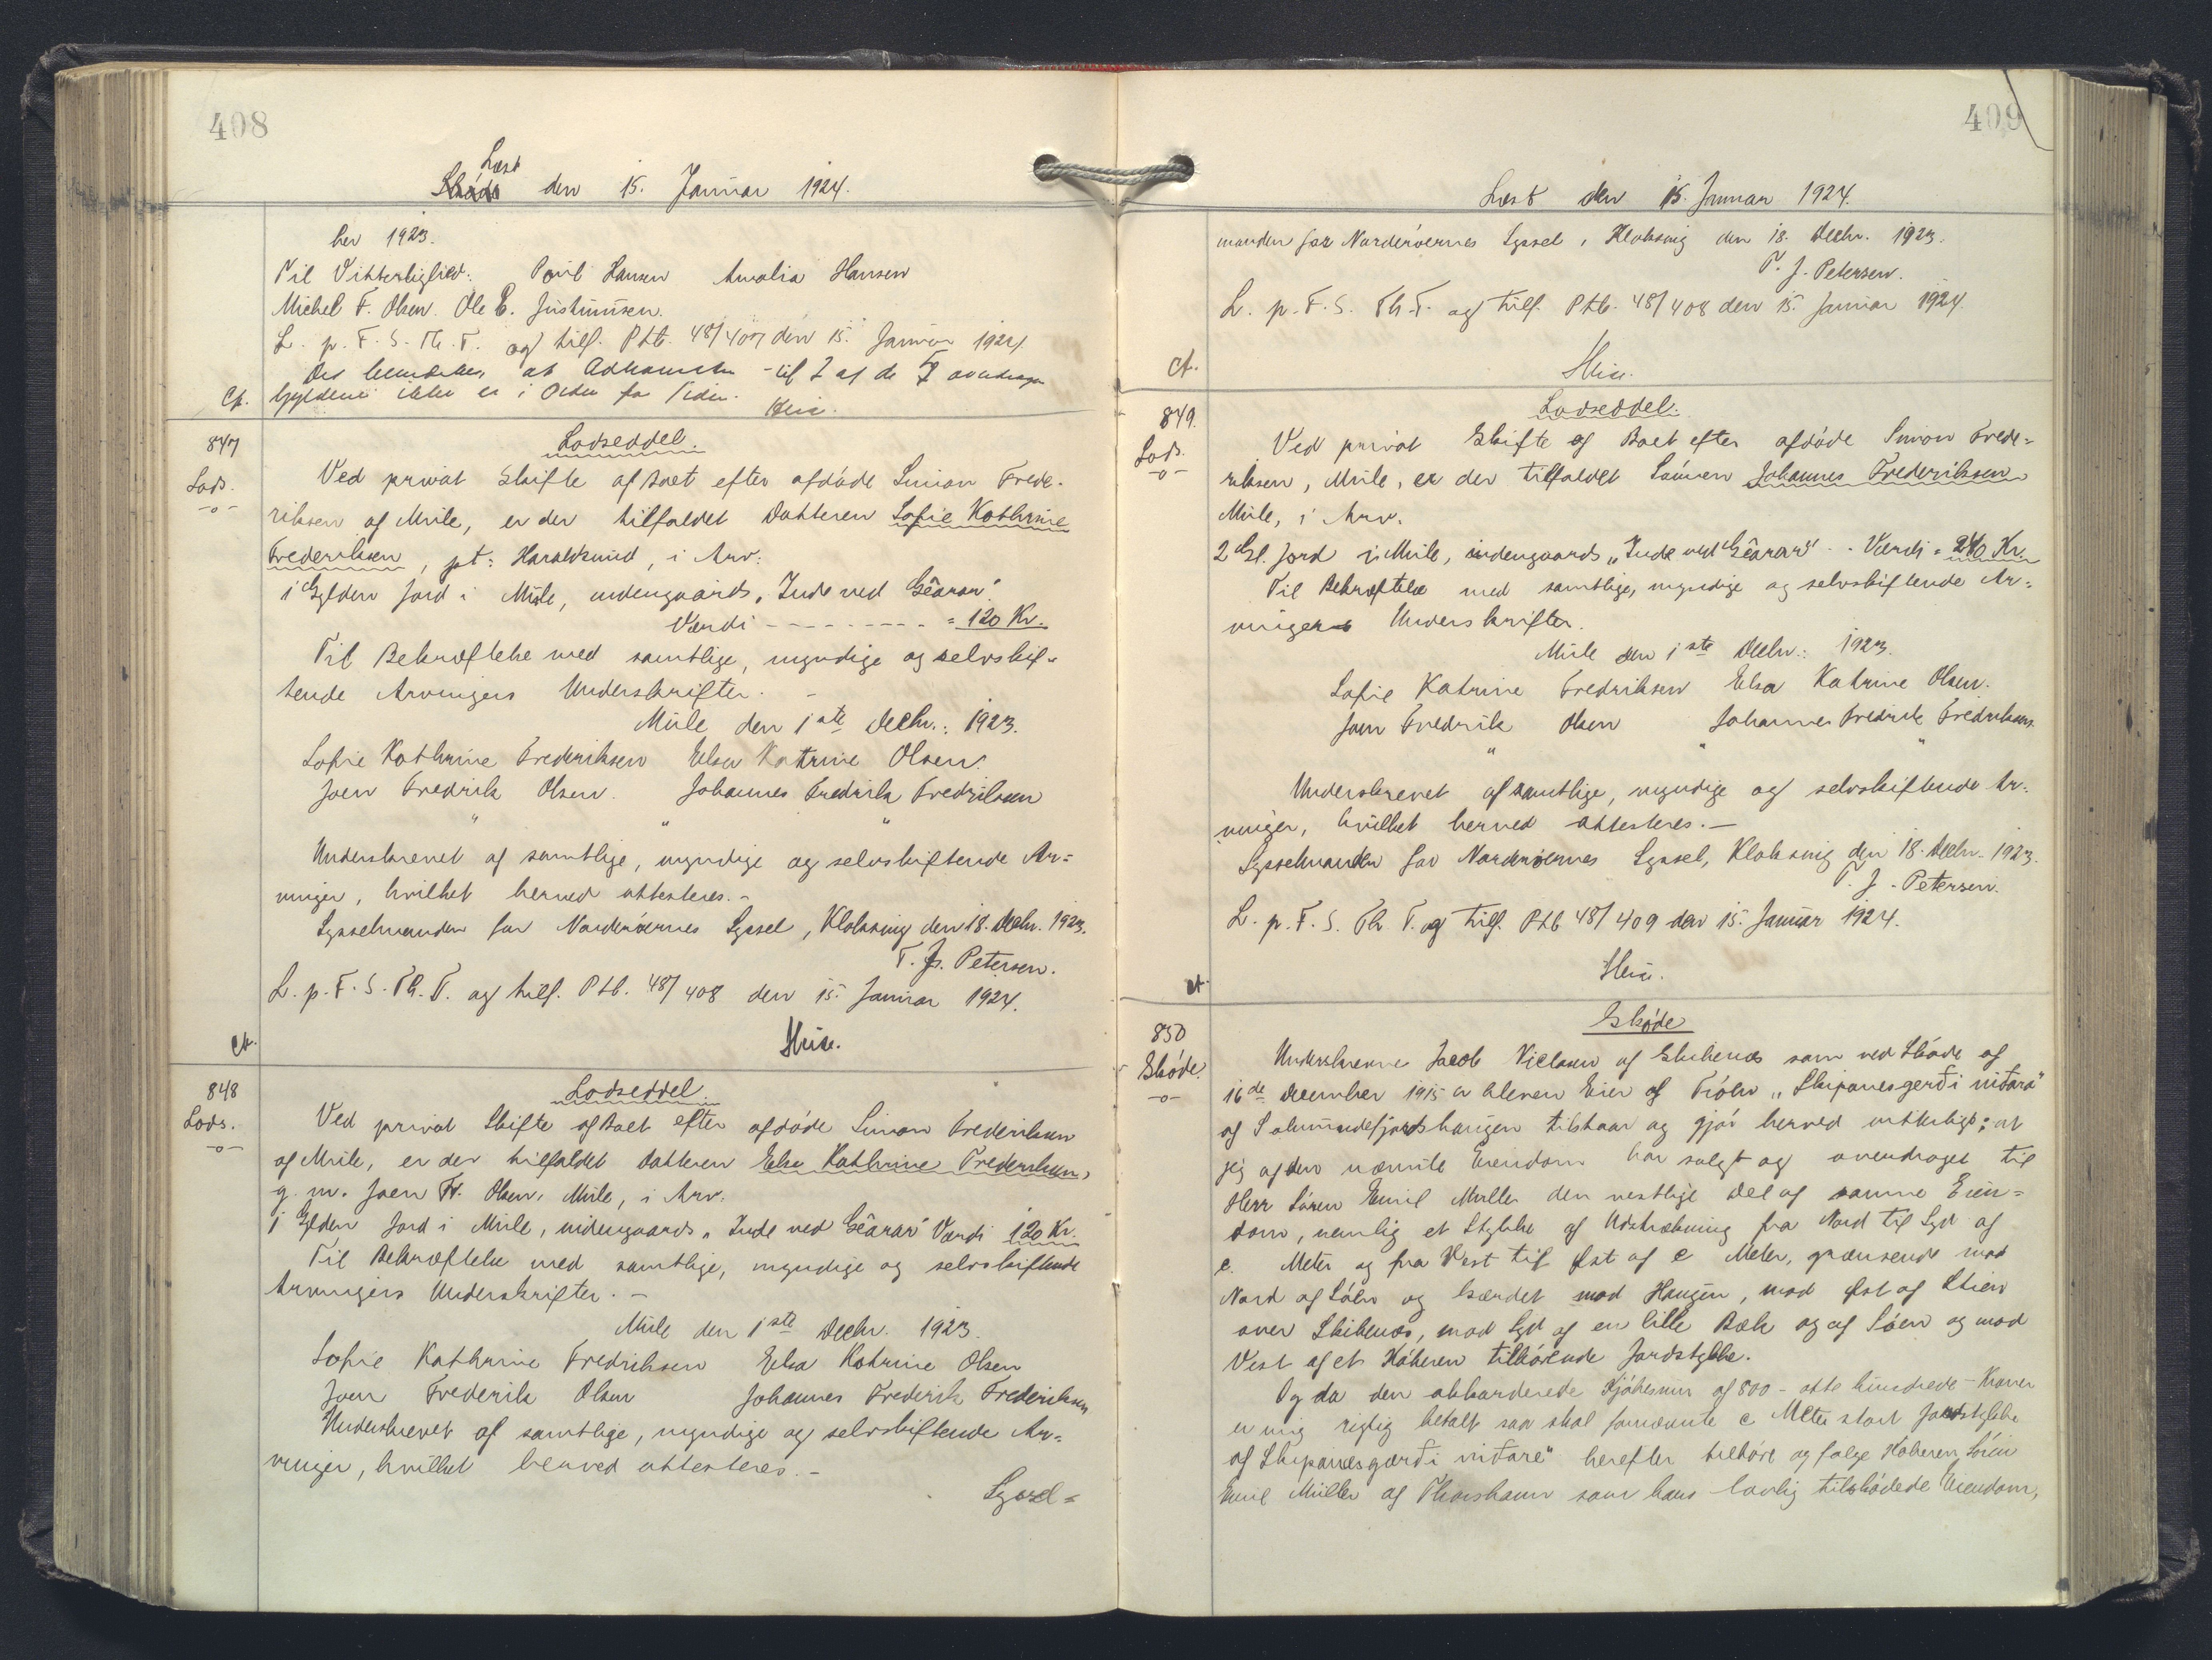 408
Læst
Skøde den 15. Januar 1924.
ber 1923.
Til Vitterlighed: Poul Hansen Amalia Hansen
Michel F. Olsen. Ole E. Justinussen.
L. p. F. S. Th. T. og tilf. Ptb. 48/407 den 15. Januar 1924
Det bemærkes, at Adkomsten til 2 af de 7 overdragne
Ct. Gylden ikke er i Orden fra Siden. Heie.
847
Lods.
-o-
Lodseddel.
Ved privat Skifte af Boet efter afdøde Simon Frede-
riksen af Mule, er der tilfaldet Datteren Sofie Kathrine
Frederiksen, pt: Haraldsund, i Arv:
1 Gylden Jord i Mule, indengaards, "Inde ved Gêarar"
Værdi - - - - - - - - - = 120 Kr.
Til Bekræftelse med samtlige, myndige og selvskif-
tende Arvingers Underskrifter. -
Mule den 1ste Decbr.: 1923.
Sofie Kathrine Frederiksen Elsa Katrine Olsen.
Joen Fredrik Olsen. Johannes Fredrik Fredriksen
" " "
Underskrevet af samtlige, myndige og selvskiftende Ar=
vinger, hvilket herved attesteres. -
Sysselmanden for Norderøernes Syssel, Klaksvig den 18. Decbr. 1923.
T. J. Petersen.
L. p. F. S. Th. T. og tilf. Ptb. 48/408 den 15. Januar 1924.
Ct.
Heie.
848
Lods.
-o-
Lodseddel
Ved privat Skifte af Boet efter afdøde Simon Frederiksen
af Mule, er der tilfaldet Datteren Elsa Kathrine Frederiksen,
g. m. Joen Fr. Olsen, Mule, i Arv:
1 Gylden Jord i Mule, indengaards, "Inde ved Gêarar" Værdi 120 Kr.
Til Bekræftelse med samtlige, myndige og selvskiftende
Arvingers Underskrifter. -
Mule den 1ste Decbr. 1923.
Sofie Kathrine Fredriksen Elsa Katrine Olsen
Joen Frederik Olsen Johannes Frederik Frederiksen
Underskrevet af samtlige, myndige og selvskiftende Ar=
vinger, hvilket herved attesteres. -
Syssel=
409
Læst den 15. Januar 1924.
manden for Norderøernes Syssel, Klaksvig den 18. Decbr. 1923.
T. J. Petersen.
L. p. F. S. Th. T. og tilf. Ptb. 48/408 den 15. Januar 1924.
Ct.
Heie.
849.
Lods.
-o-
Lodseddel.
Ved privat Skifte af Boet efter afdøde Simon Frede=
riksen, Mule, er der tilfaldet Sønnen Johannes Frederiksen
Mule, i Arv.
2 Gl. Jord i Mule, indengaards "Inde ved Gêarar" . . Værdi = 240 Kr.
Til Bekræftelse med samtlige, myndige og selvskiftende Ar=
vingers Underskrifter.
Mule den 1ste Decbr.: 1923.
Sofie Katrine Fredriksen Elsa Katrine Olsen.
Joen Fredrik Olsen Johannes Fredrik Fredriksen.
" " "
Underskrevet af samtlige, myndige og selvskiftende Ar-
vinger, hvilket herved attesteres. -
Sysselmanden for Norderøernes Syssel, Klaksvig den 18. Decbr. 1923.
T. J. Petersen.
L. p. F. S. Th. T. og tilf. Ptb 48/409 den 15. Januar 1924.
Heie.
Ct.
850
Skøde.
-o-
Skøde
Underskrevne Jacob Niclasen af Skibenæs som ved Skøde af
16de December 1915 er bleven Eier af Tróðin "Skipanesgerði niðara"
af Solmundefjordshaugen tilstaar og gjør herved vitterligt: at
jeg af den nævnte Eiendom har solgt og overdraget til
Herr Sören Emil Müller den vestlige Del af samme Eien=
dom, nemlig et Stykke af Udstrækning fra Nord til Syd af
c. Meter og fra Vest til Øst af c Meter, grænsende mod
Nord af og Gærdet mod Haugen, mod Øst af Stien
over Skibenæs, mod Syd af en lille Bæk og af Söen og mod
Vest af et Köberen tilhörende Jordstykke.
Og da den akkorderede Kjöbesum af 800 - otte hundrede - Kroner
er mig rigtig betalt saa skal fornævnte c Meter stort Jordstykke
af Skipanesgærði niðare" herefter tilhøre og følge Köberen Sören
Emil Müller af Thorshavn som hans lovlig tilskødede Eiendom,